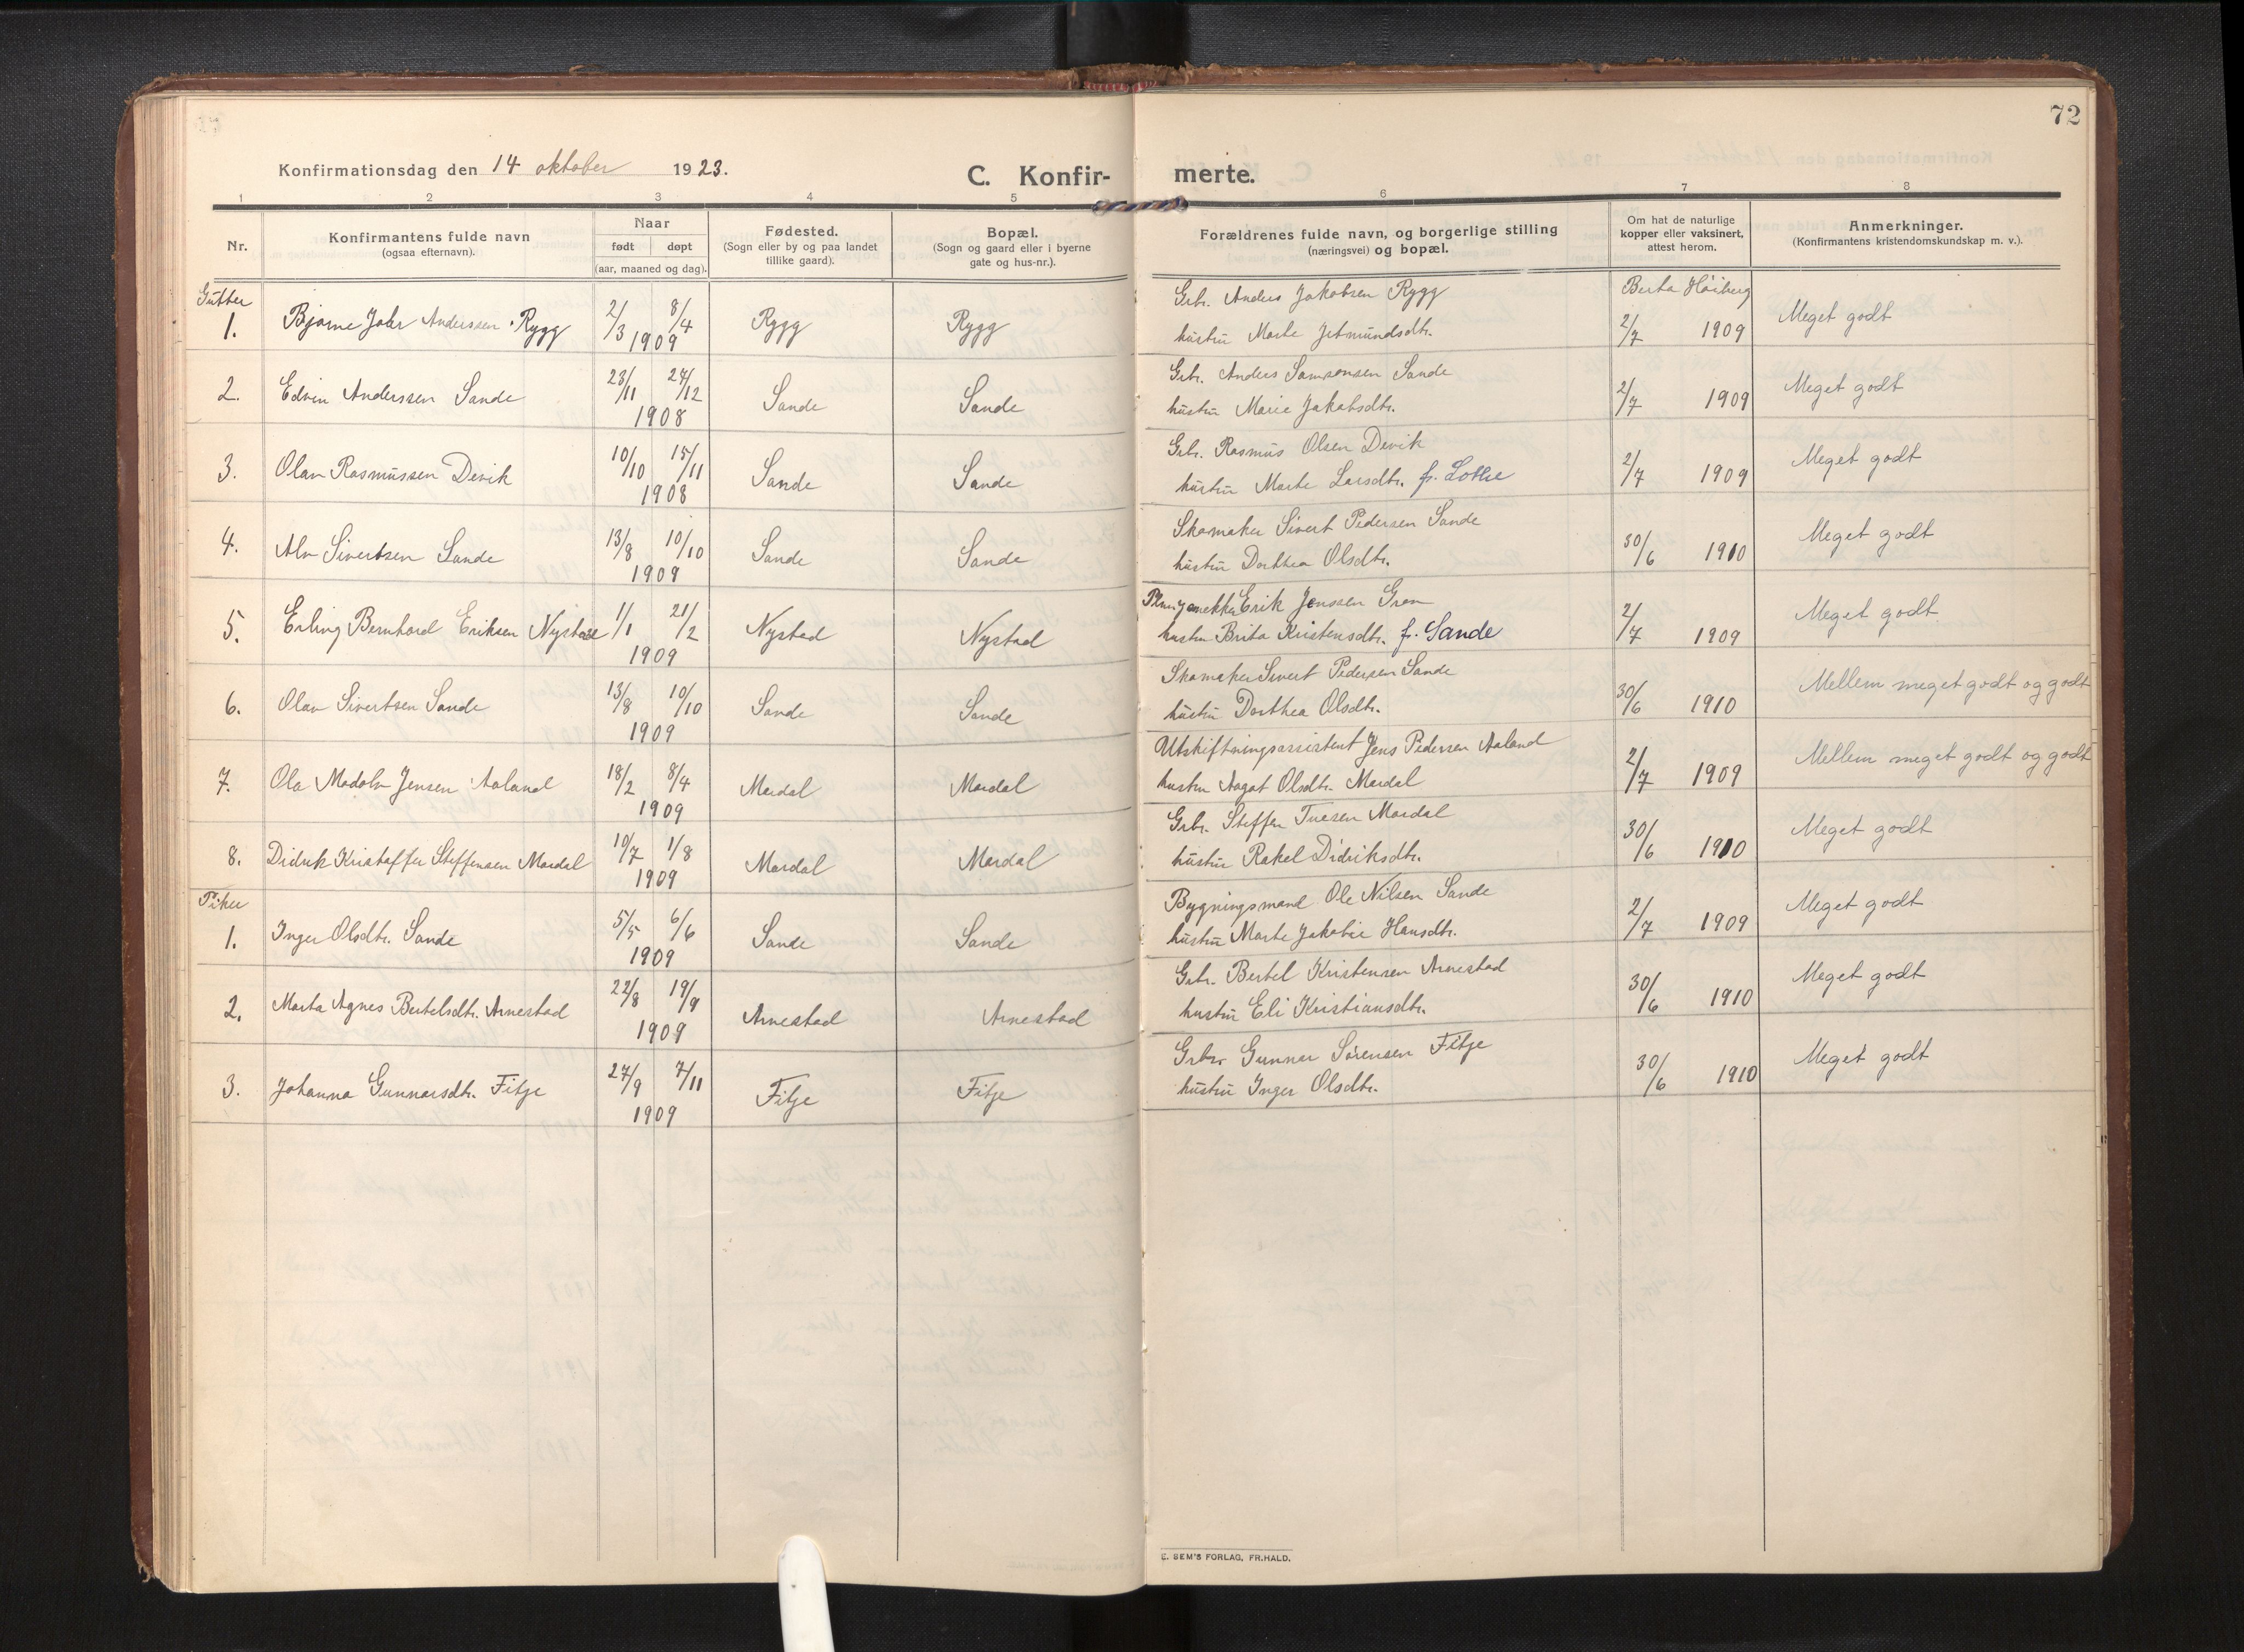 72
Konfirmationsdag den 14 oktober 1923.
C. Konfir- merte.
1 2 3 4 5 6 7 8
Nr.
Konfirmantens fulde navn
(ogsaa efternavn).
Naar
født døpt
(aar, maaned og dag).
Fødested.
(Sogn eller by og paa landet
tillike gaard).
Bopæl.
(Sogn og gaard eller i byerne
gate og hus-nr.).
Forældrenes fulde navn, og borgerlige stilling
(næringsvei) og bopæl.
Om hat de naturlige
kopper eller vaksinert,
attest herom.
Anmerkninger.
(Konfirmantens kristendomskundskap m. v.).
Gutter
1. Bjarne Anderssen Rygg 2/3 8/4 1909 Rygg Rygg
Grbr. Anders Jakobsen Rygg
hustru Marte Jetmundsdtr.
Berta Høiberg
2/7 1909 Meget godt
2. Edvin Anderssen Sande 23/11 24/12 1908 Sande Sande
Grbr. Anders Samsonsen Sande
hustru Marie Jakobsdtr.
2/7 1909 Meget godt
3. Olav Rasmussen Devik 10/10 15/11 1908 Sande Sande
Gbr. Rasmus Olsen Devik
hustru Marte Larsdtr. f. Lothe
2/7 1909 Meget godt
4. Alv Sivertsen Sande 13/8 10/10 1909 Sande Sande
Skomaker Sivert Pedersen Sande
hustru Dorthea Olsdtr.
30/6 1910 Meget godt
5. Erling Bernhard Eriksen Nystad 1/1 21/2 1909 Nystad Nystad
Erik Jenssen Gren
hustru Brita Kristensdtr. f. Sande
2/7 1909 Meget godt
6. Olav Sivertsen Sande 13/8 10/10 1909 Sande Sande
Skomaker Sivert Pedersen Sande
hustru Dorthea Olsdtr.
30/6 1910 Mellem meget godt og godt
7. Ola Madolv Jensen Aaland 18/2 8/4 1909 Mardal Mardal
Utskiftningsassistent Jens Pedersen Aaland
hustru Aagot Olsdtr. Mardal
2/7 1909 Mellem meget godt og godt
8. Didrik Kristoffer Steffensen Mardal 10/7 1/8 1909 Mardal Mardal
Grbr. Steffen Mardal
hustru Rakel Didriksdtr.
30/6 1910 Meget godt
Piker
1. Inger Olsdtr. Sande 5/5 6/6 1909 Sande Sande
Bygningsmand Ole Nilsen Sande
hustru Marte Jakobie Hansdtr.
2/7 1909 Meget godt
2. Marta Agnes Bertelsdtr. Arnestad 22/8 19/9 1909 Arnestad Arnestad
Grbr. Bertel Kristensen Arnestad
hustru Eli Kristiansdtr.
30/6 1910 Meget godt
3. Johanna Gunnarsdtr. Fitje 27/9 7/11 1909 Fitje Fitje
Grbr. Gunnar Sørensen Fitje
hustru Inger Olsdtr.
30/6 1910 Meget godt
E. SEM'S FORLAG, FR.HALD.